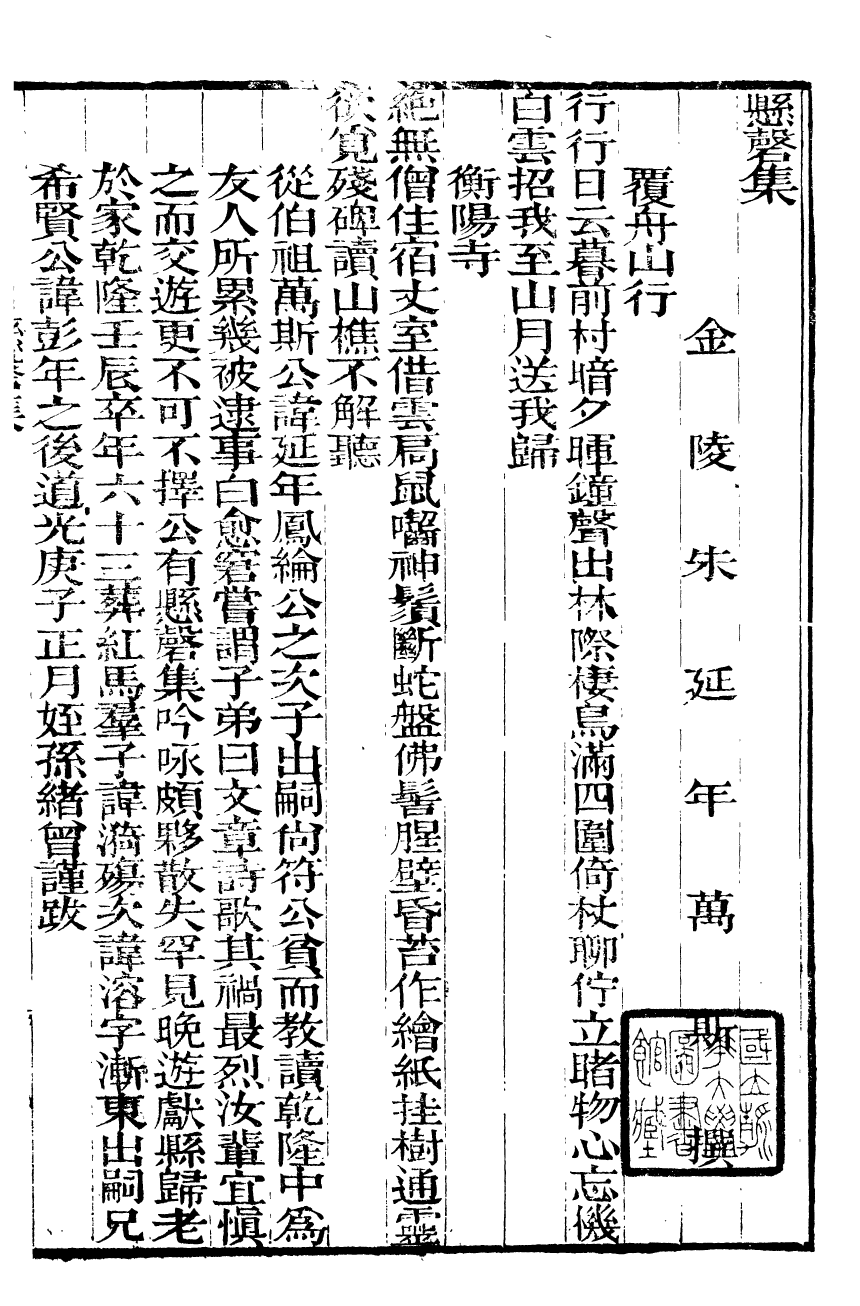 懸磬集
金陵朱延年萬斯撰
覆舟山行
行行日云暮前村暗夕暉鐘聲出林際棲鳥滿四圍倚杖聊佇立睹物心忘機
白雲招我至山月送我歸
衡陽寺
絕無僧住宿丈室借雲扃鼠囓神鬚斷蛇盤佛髻腥壁昏苔作繪紙挂樹通靈
欲覓殘碑讀山樵不解聽
從伯祖萬斯公諱延年鳳綸公之次子出嗣尙符公貧而教讀乾隆中爲
友人所累幾被逮事白愈窘嘗謂子弟曰文章詩歌其禍最烈汝輩宜愼
之而交遊更不可不擇公有懸磬集吟咏頗夥散失罕見晚遊獻縣歸老
於家乾隆壬辰卒年六十三葬紅馬羣子諱漪殤次諱溶字漸東出嗣兄
希賢公諱彭年之後道光庚子正月姪孫緒曾謹跋
懸磬集
國立清華大學圖書館藏